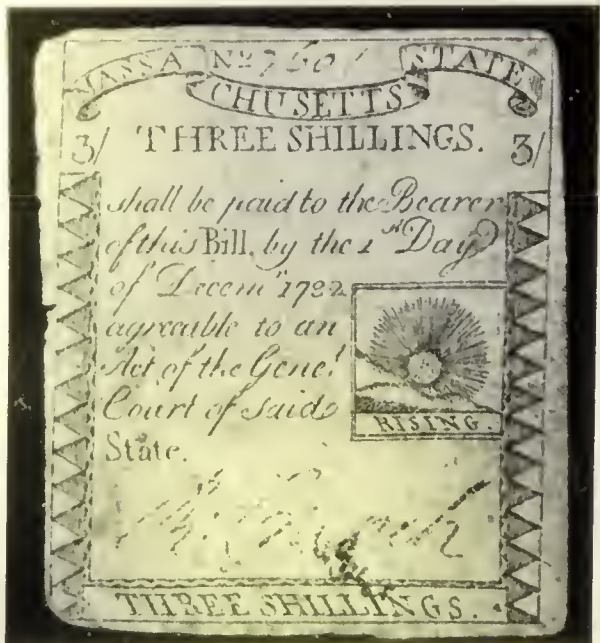 MASSA No STATE
CHUSETTS
3/ THREE SHILLINGS. 3/
shall be paid to the Bearer
of this Bill, by the 1st Day
of Decemr 1782
agreeable to an
Act of the Genel
Court of said
State.
RISING.
THREE SHILLINGS.